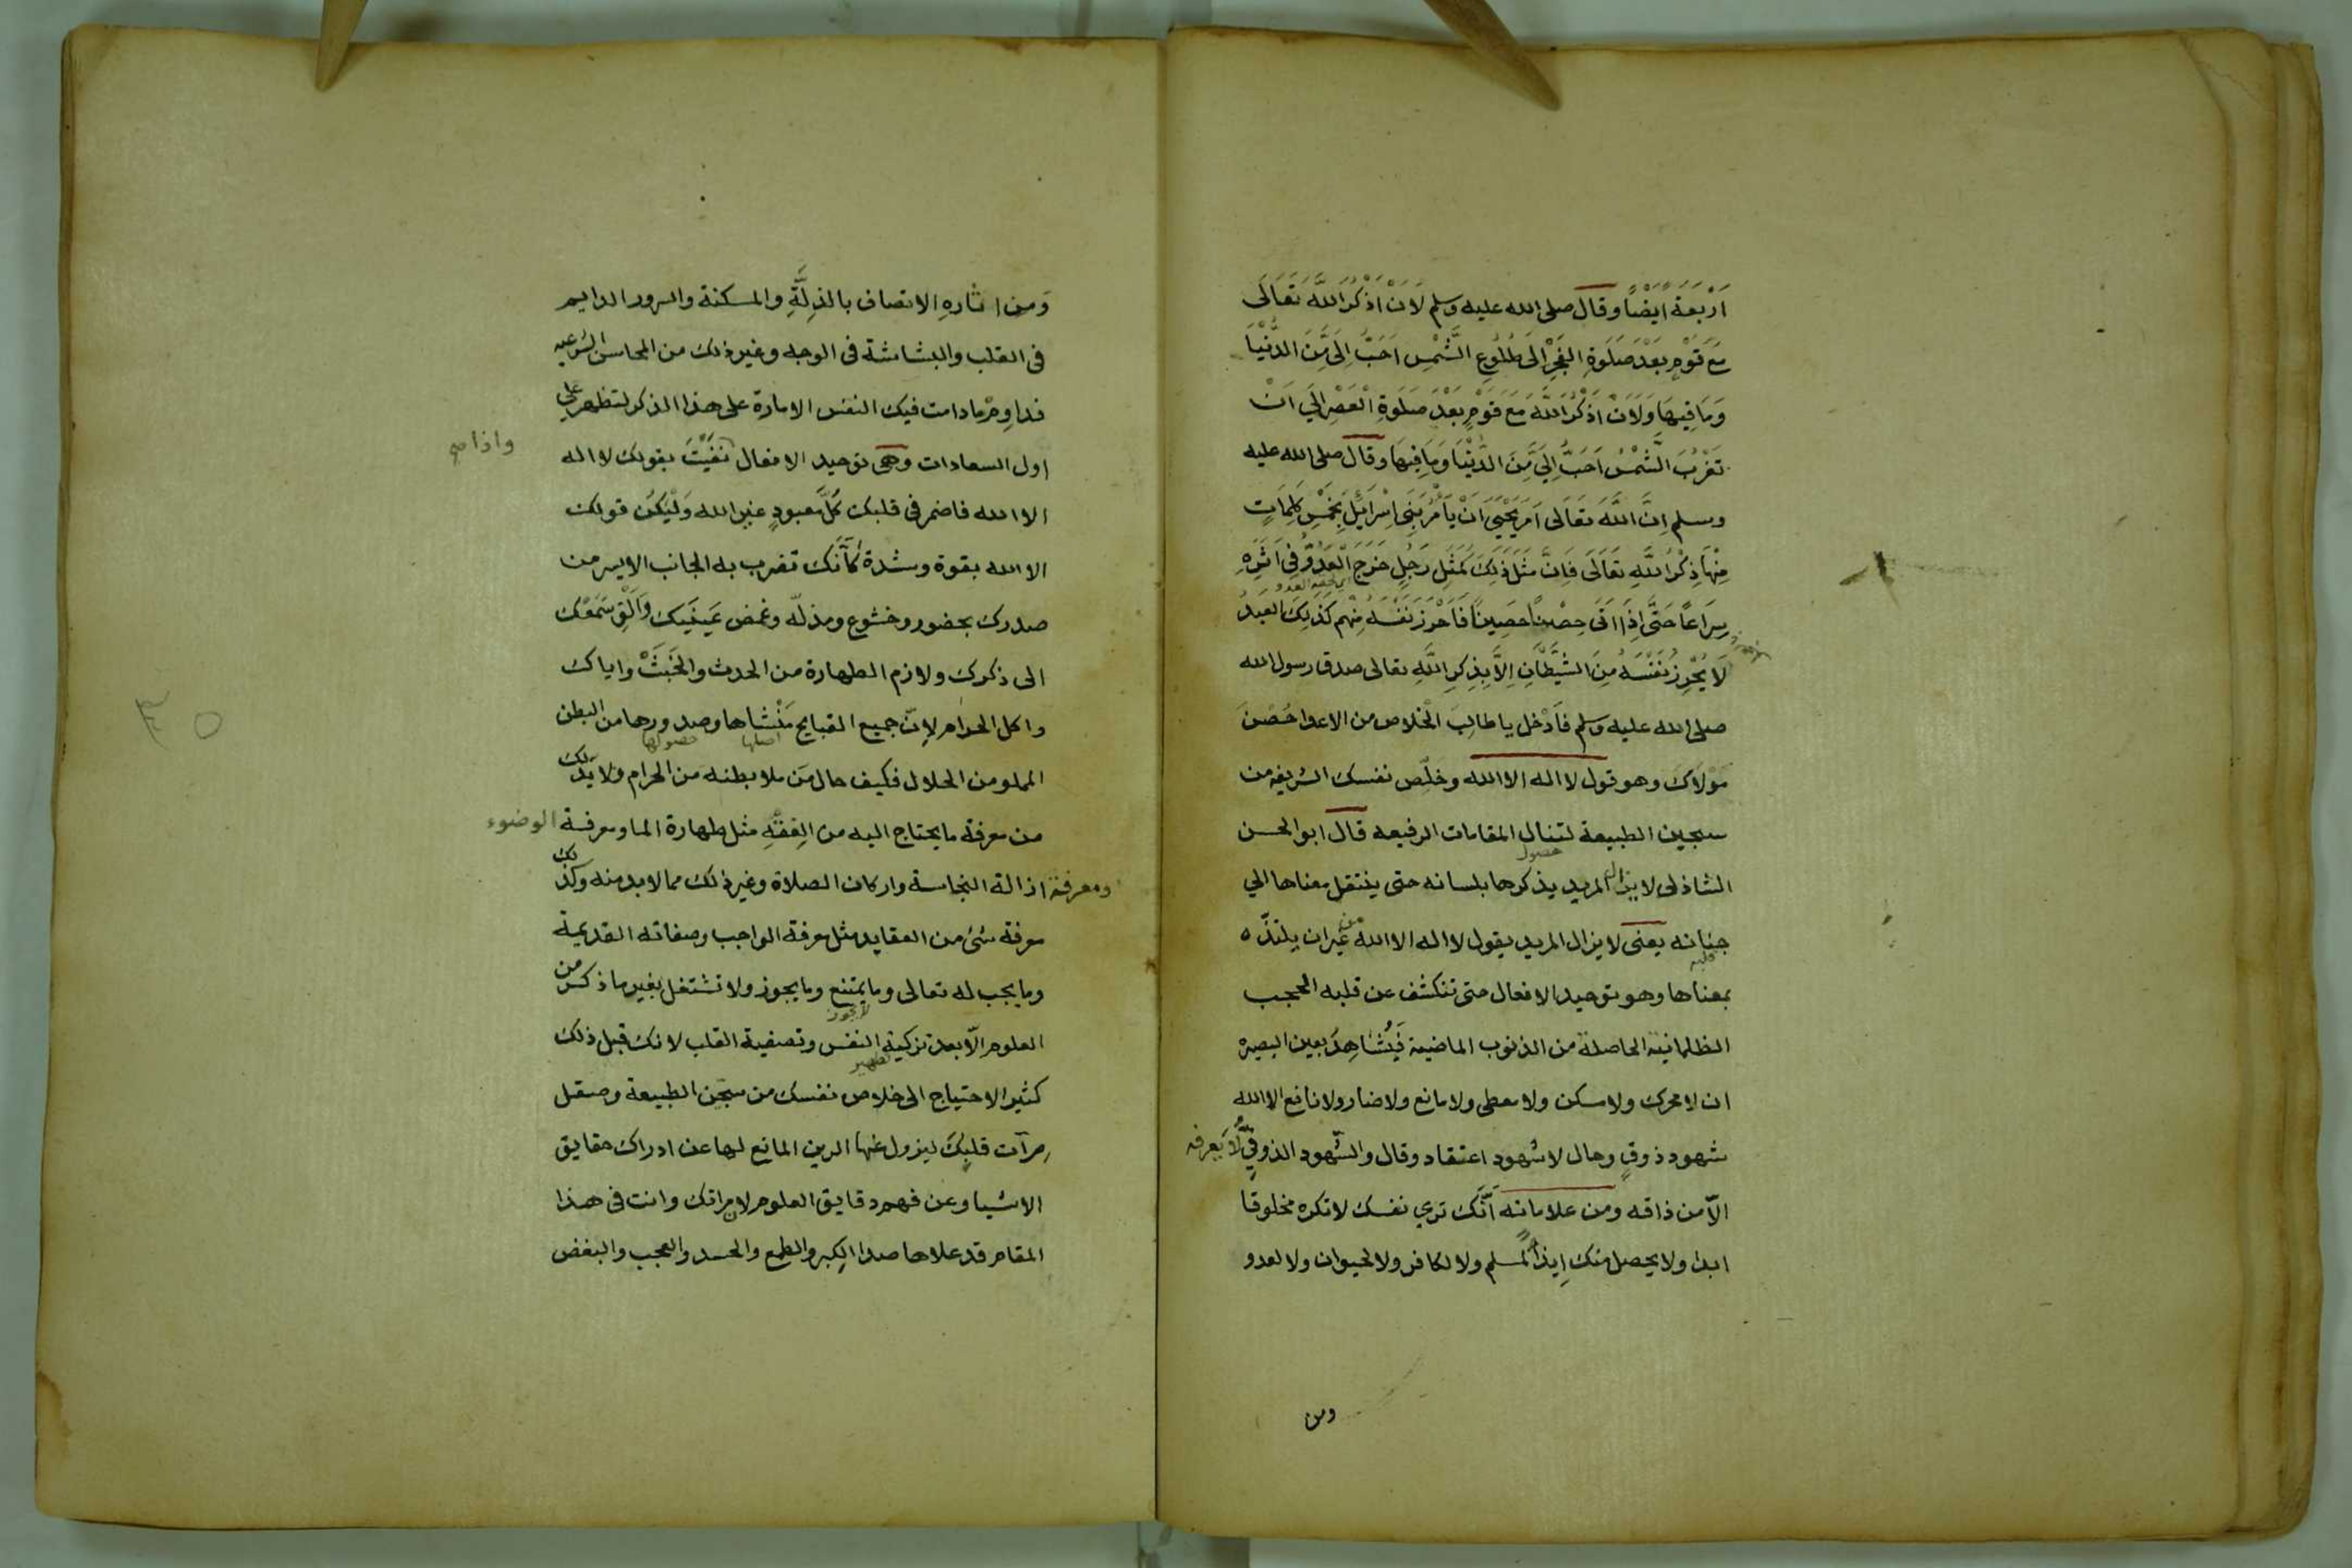 اَرْبَعَة اَيْضًا وقال صلى الله عليه وسلم لَاَنْ اَذْكُرَ اللَّهَ تَعَالَى
مَعَ قَوْمٍ بَعْدَ صَلَوةِ الفَجْرِ اِلَى طُلُوعِ الشَّمْسِ اَحَبُّ اِلَىَّ مِنَ الدُّنْيَا
وَمَا فِيهَا وَلَاَنْ اَذْكُرَ اللَّهَ مَعَ قَوْمٍ بَعْدَ صَلَوةِ الْعَصْرِ اِلَى اَنْ
تَغْرُبَ الشَّمْسُ اَحَبُّ اِلَىَّ مِنَ الدُّنْيَا وَمَا فِيهَا وقال صلى الله عليه
وسلم اِنَّ اللَّهَ تَعَالَى اَمَرَ يَحْيَى اَنْ يَأْمُرَ بَنِى اِسْرَائِلَ بِخَمْسِ كَلِمَاتٍ
مِنْهَا ذِكْرُ اللَّهِ تَعَالَى فَاِنَّ مَثَلَ ذَلِكَ كَمَثَلِ رَجُلٍ خَرَجَ الْعَدُوُّ فِى اَثَرِهِ
سِرَاعًا حَتَّى اِذَا اَتَى حِصْنًا حَصِينًا فَاَحْرَزَ نَفْسَهُ مِنْهُمْ كَذَلِكَ العَبْدُ
لَا يُحْرِزُ نَفْسَهُ مِنَ الشَّيْطَانِ اِلَّا بِذِكْرِ اللَّهِ تعالى صدق رسول الله
صلى الله عليه وسلم فَادْخل يا طالِبَ الْخلاص من الاعدا حُصْنَ
مَوْلَاكَ وهو قول لا اله الا الله وخَلِّص نفسك الشريفه من
سجين الطبيعة لتنال المقامات الرفيعه قال ابو الحسن
حصول
الشاذلى لا يزال المريد يذكرها بلسانه حتى ينتقل معناها الي
جنانه يعنى لا يزال المريد يقول لا اله الا الله من غير ان يلتذّ ه
قلبه
بمعناها وهو توحيد الافعال حتى تنكشف عن قلبه الحجب
الظلمانية الحاصلة من الذنوب الماضية فَيُشَاهِدُ بعين البصيره
ان لا محرك ولا مسكن ولا معطى ولا مانع ولا ضار ولا نافع الا الله
شهود ذوقٍ وحال لا شهود اعتقاد وقال والشّهود الذوقيّ لا يعرفه
الاّ من ذاقه ومن علاماته اَنَّكَ تري نفسك لا تكره مخلوقا
ابدا ولا يحصل منك اِيذآ لمسلم ولا لكافر ولا لحيوان ولا لعدو
ومن
وَمن اثارِهِ الاتصاف بالذِلَّةِ والمسكنة والسرور الدايم
فى القلب والبشاشة فى الوجه وغير ذلك من المحاسن الشرعيه
فداوِمْ ما دامت فيك النفس الامارة على هذا الذكر لتظهر على
اول السعادات وهى توحيد الافعال نَفَيْتَ بقولك لا اله
واذا صح
الا الله فاضمر فى قلبك كُلَّ معبودٍ غير الله وَلْيَكُن قولك
الا الله بقوة وشدة كَأَنَّكَ تضرب به الجانب الايسر من
صدرك بحضور وخشوع ومذلّه وغمض عَيْنَيك وَالْقِ سَمْعَك
الى ذكرك ولازم الطهارة من الحدث والْخَبَثْ واياك
واكل الحرام لِاَنّ جميع القبايح مَنْشاها وصدورها من البطن
اصلها حصولها
المملو من الحلال فكيف حال مَن ملا بطنه من الحرام ولا بدّ لك
من معرفة ما يحتاج اليه من الفِقْهِ مثل طهارة الما ومعرفة الوضوء
ومعرفة ازالة النجاسة واركان الصلاة وغير ذلك مما لا بد منه وكذلك
معرفة شىء من العقايد مثل معرفة الواجب وصفاته القديمة
وما يجب له تعالى وما يمتنع وما يجوز ولا تشتغل بغير ما ذكر من
لا يجوز
العلوم الاّ بعد تزكية النفس وتصفية القلب لانك قبل ذلك
تطهير
كثير الاحتياج الى خلاص نفسك من سِجْن الطبيعة وصقل
مرآت قلبِكَ ليزول عنها الرين المانع لها عن ادراك حقايق
الاشيا وعن فهم دقايق العلوم لان مراتك وانت فى هذا
المقام قد علاها صدا الكِبر والطمع والحسد والعجب والبغض